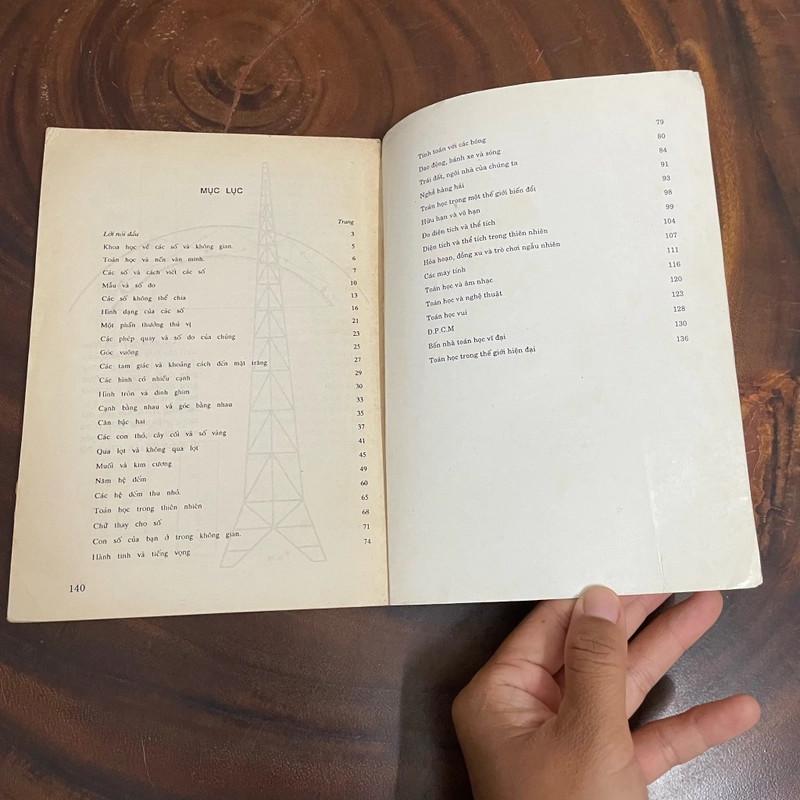 MỤC LỤC
Trang
Lời nói đầu 3
Khoa học về các số và không gian. 5
Toán học và nền văn minh. 6
Các số và cách viết các số 7
Mẫu và số đo 10
Các số không thể chia 13
Hình dạng của các số 16
Một phần thưởng thú vị 21
Các phép quay và số đo của chúng 23
Góc vuông 25
Các tam giác và khoảng cách đến mặt trăng 27
Các hình có nhiều cạnh 29
Hình tròn và đinh ghim 30
Cạnh bằng nhau và góc bằng nhau 33
Căn bậc hai 35
Các con thỏ, cây cối và số vàng 37
Qua lọt và không qua lọt 41
Muối và kim cương 45
Năm hệ đếm 49
Các hệ đếm thu nhỏ 60
Toán học trong thiên nhiên 65
Chữ thay cho số 68
Con số của bạn ở trong không gian. 71
Hành tinh và tiếng vọng 74
140
Tính toán với các bóng 79
Dao động, bánh xe và sóng 80
Trái đất, ngôi nhà của chúng ta 84
Nghề hàng hải 91
Toán học trong một thế giới biến đổi 93
Hữu hạn và vô hạn 98
Đo diện tích và thể tích 99
Diện tích và thể tích trong thiên nhiên 104
Hỏa hoạn, đồng xu và trò chơi ngẫu nhiên 107
Các máy tính 111
Toán học và âm nhạc 116
Toán học và nghệ thuật 120
Toán học vui 123
Đ.P.C.M 128
Bốn nhà toán học vĩ đại 130
Toán học trong thế giới hiện đại 136